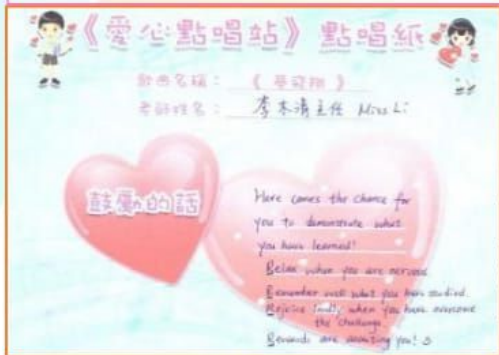 《愛心點唱站》點唱紙
歌曲名稱：《夢飛翔》
老師姓名：李木清主任 Miss Li
鼓勵的話
Here comes the chance for
you to demonstrate what
you have learned!
Relax when you are nervous.
Remember well what you have studied.
Rejoice loudly when you have overcome
the challenge.
Rewards are awaiting you!